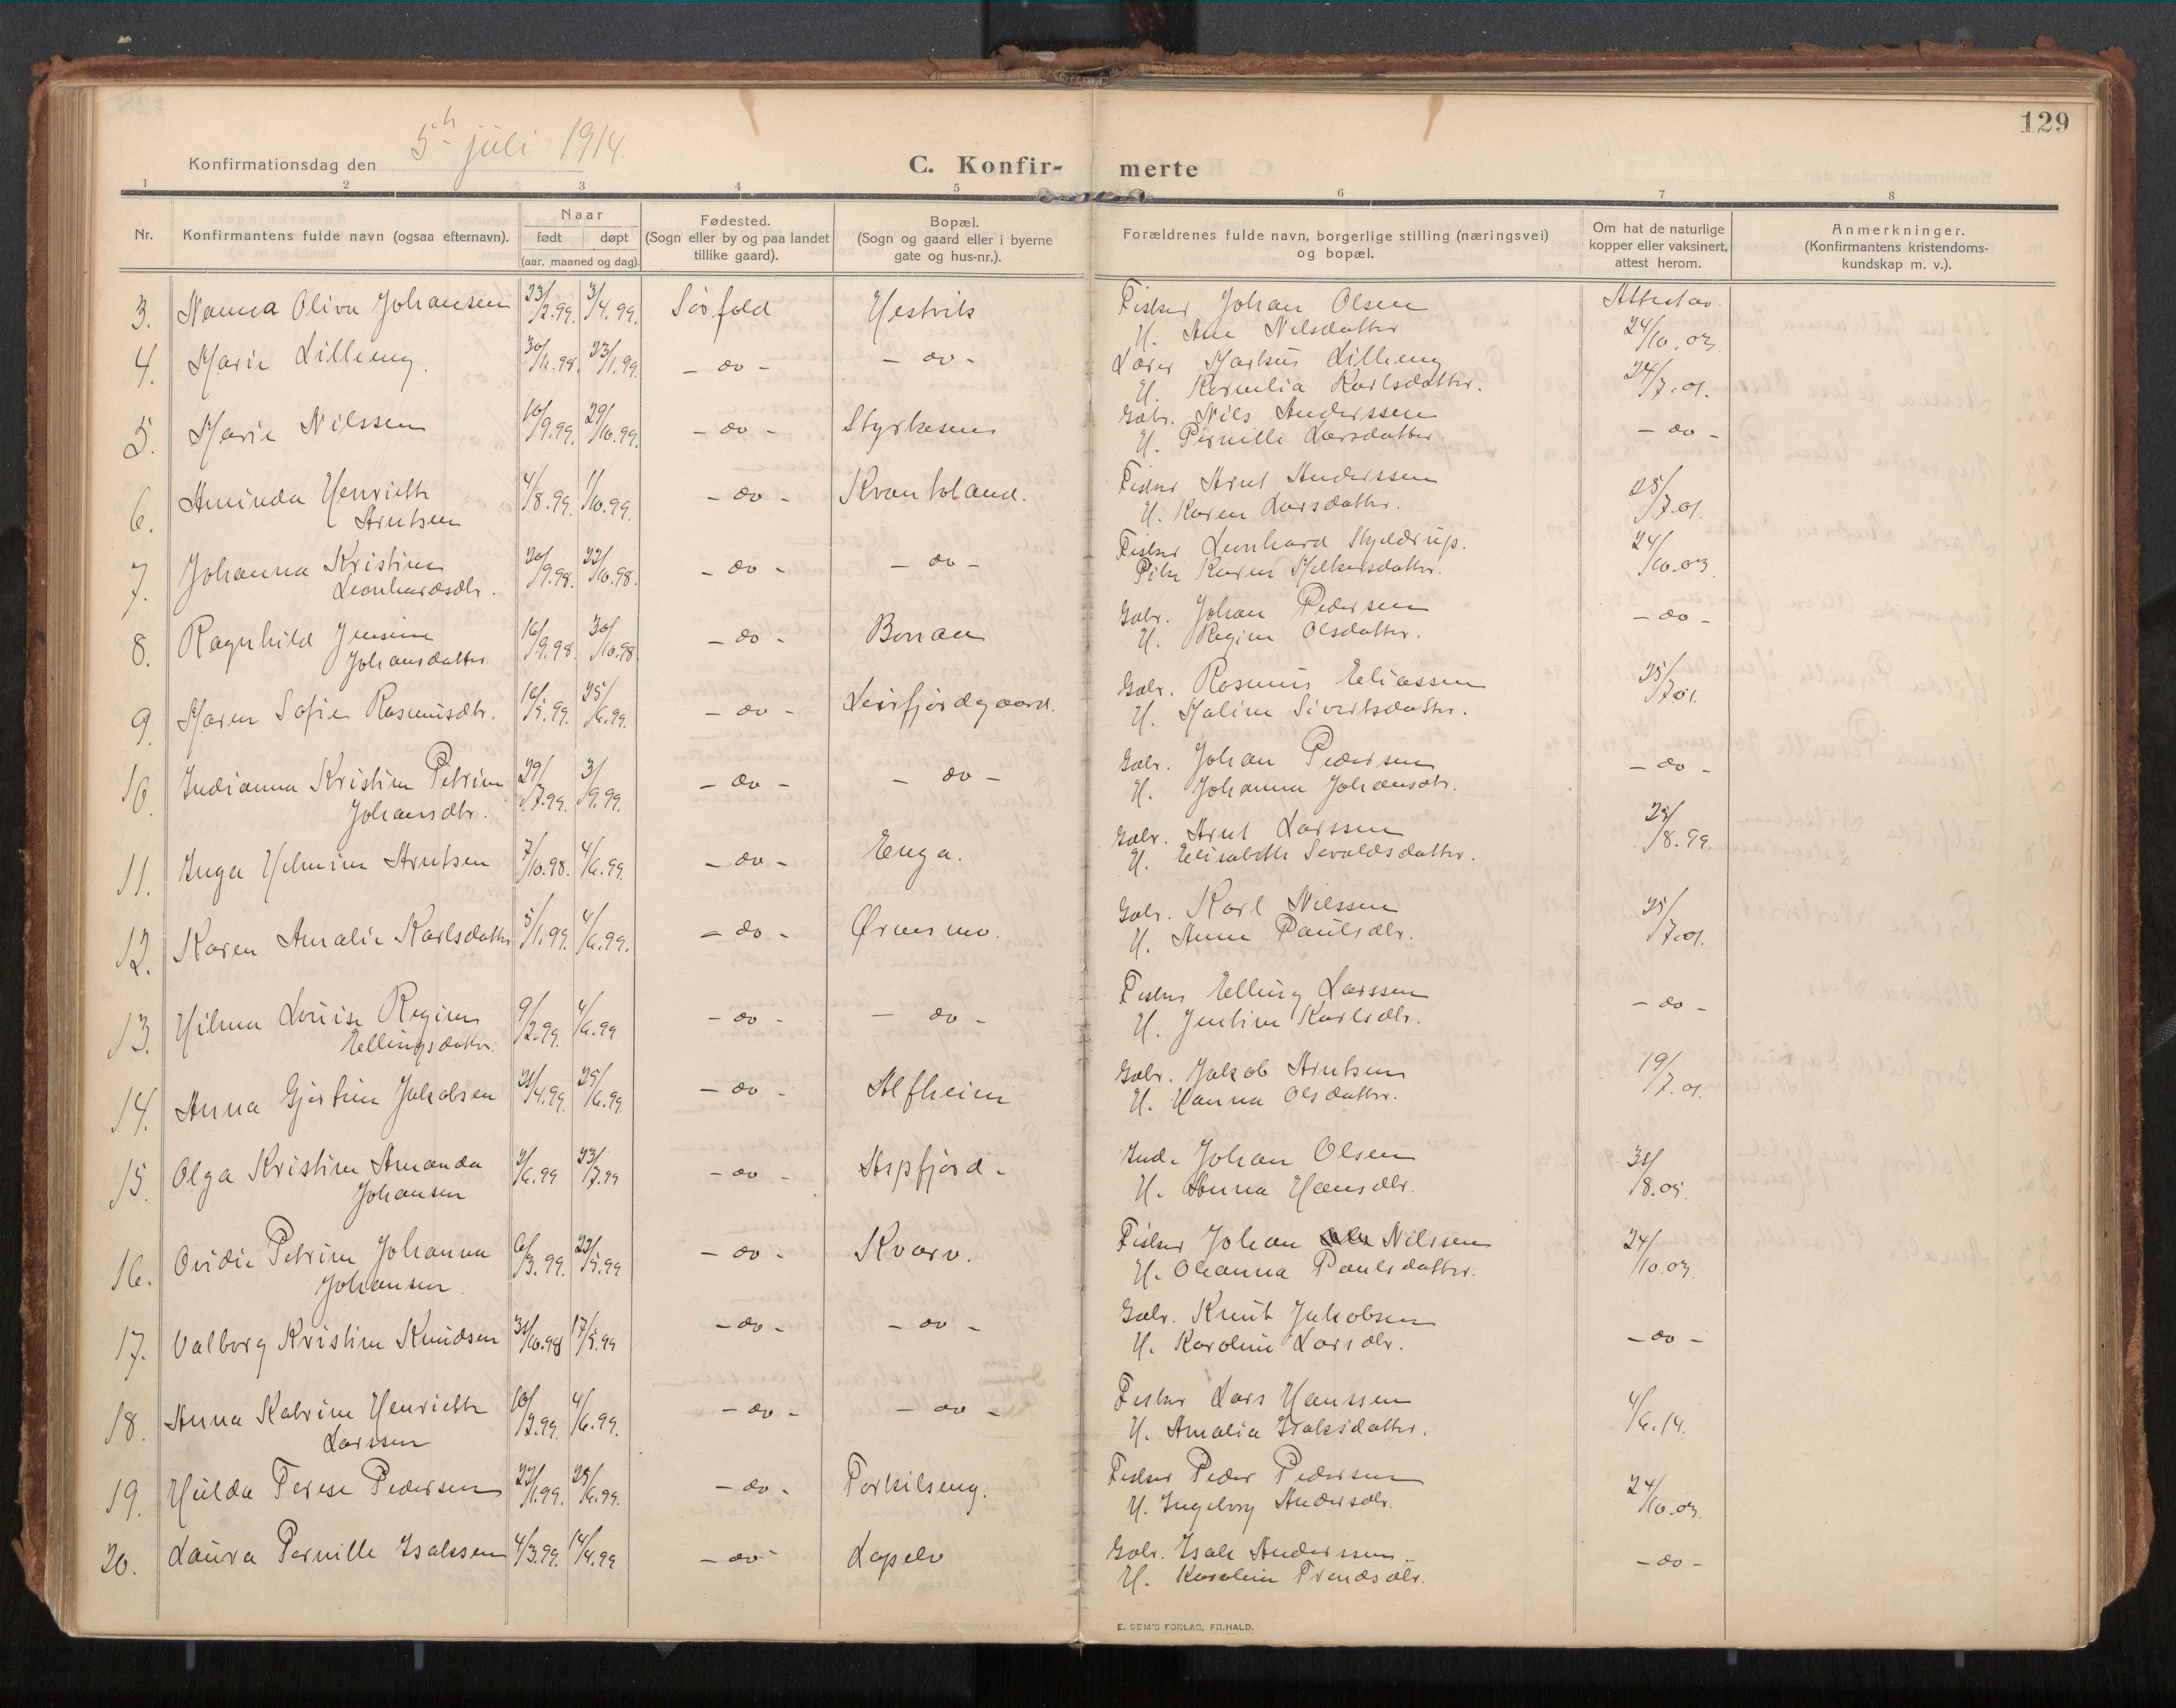 129
Konfirmationsdag den 5h juli 1914.
C. Konfir- merte
1 2 3 4 5 6 7 8
Nr.
Konfirmantens fulde navn (ogsaa efternavn).
Naar
født døpt
(aar, maaned og dag).
Fødested.
(Sogn eller by og paa landet
tillike gaard).
Bopæl.
(Sogn og gaard eller i byerne
gate og hus-nr.).
Forældrenes fulde navn, borgerlige stilling (næringsvei)
og bopæl.
Om hat de naturlige
kopper eller vaksinert,
attest herom.
Anmerkninger.
(Konfirmantens kristendoms-
kundskap m. v.).
3. Nanna Oliva Johansen 23/2.99. 3/4.99. Sørfold Hestvik Fisker Johan Olsen Attest av
H. Ane Nilsdatter 24/10.03.
4. Marie Lilleeng. 30/11.98. 23/1.99. - do - - do - Lærer Markus Lilleeng
H. Kornelia Karlsdatter. 24/7.01.
5. Marie Nilssen 10/9.99. 29/10.99. - do - Styrkesnes Gbr. Nils Anderssen
H. Pernille Larsdatter. - do -
6. Aminda Henriette 4/8.99. 1/10.99. - do - Kvantoland. Fisker Arnt Anderssen
Arntsen H. Karen Larsdatter. 25/7.01.
7. Johanna Kristine 20/9.98. 23/10.98. - do - - do - Fisker Leonhard Skjeldrup. 24/10.03.
Leonhardsdtr. Pike Karen Mikkelsdatter.
8. Ragnhild Jensine 16/9.98. 30/10.98. - do - Bonaa Gbr. Johan Pedersen - do -
Johansdatter H. Regine Olsdatter.
9. Maren Sofie Rasmusdtr. 16/5.99. 25/6.99. - do - Leirfjordgaard. Gbr. Rasmus Eliassen 25/7.01.
H. Maline Sivertsdatter.
10. Indianna Kristine Petrine 29/7.99. 3/9.99. - do - - do - Gbr. Johan Pedersen - do -
Johansdtr. H. Johanna Johansdtr.
11. Inga Helmine Arntsen 7/10.98. 4/6.99. - do - Enga. Gbr. Arnt Larssen
H. Elisabeth Sevaldsdatter. 25/8.99.
12. Karen Amalie Karlsdatter 5/1.99. 4/6.99. - do - Ørnesmo. Gbr. Karl Nilssen 25/7.01.
H. Anne Paulsdtr.
13. Hilma Louise Regine 9/2.99. 4/6.99 - do - - do - Fisker Elling Larssen - do -
Ellingsdatter. H. Jentine Karlsdtr.
14. Anna Gjertine Jakobsen 21/4.99. 25/6.99. - do - Alfheim Gbr. Jakob Arntsen 19/7.01.
H. Hanna Olsdatter.
15. Olga Kristine Amanda 2/6.99 23/7.99 - do - Aspfjord. Ind. Johan Olsen
Johansen H. Anna Hansdtr. 31/8.05.
16. Ovidie Petrine Johanna 6/3.99. 23/5.99 - do - Kvarv. Fisker Johan Nilssen 24/10.03.
Johansen. H. Oleanna Paulsdatter.
17. Valborg Kristine Knudsen 31/10.98 17/5.99 - do - - do - Gbr. Knut Jakobsen
H. Karoline Larsdtr. - do -
18. Anna Katrine Henriette 10/2.99. 4/6.99. - do - - do - Fisker Lars Hanssen
Larssen H. Amalia Isaksdatter. 4/6.14.
19. Hulda Terese Pedersen 22/1.99. 25/6.99. - do - Torkilseng. Fisker Peder Pedersen
H. Ingeborg Andersdtr. 24/10.03.
20. Laura Pernille Isakssen 4/3.99. 14/4.99 - do - Lapelv Gbr. Isak Anderssen.
H. Karoline Trondsdtr. - do -
E. SEM'S FORLAG, FR.HALD.